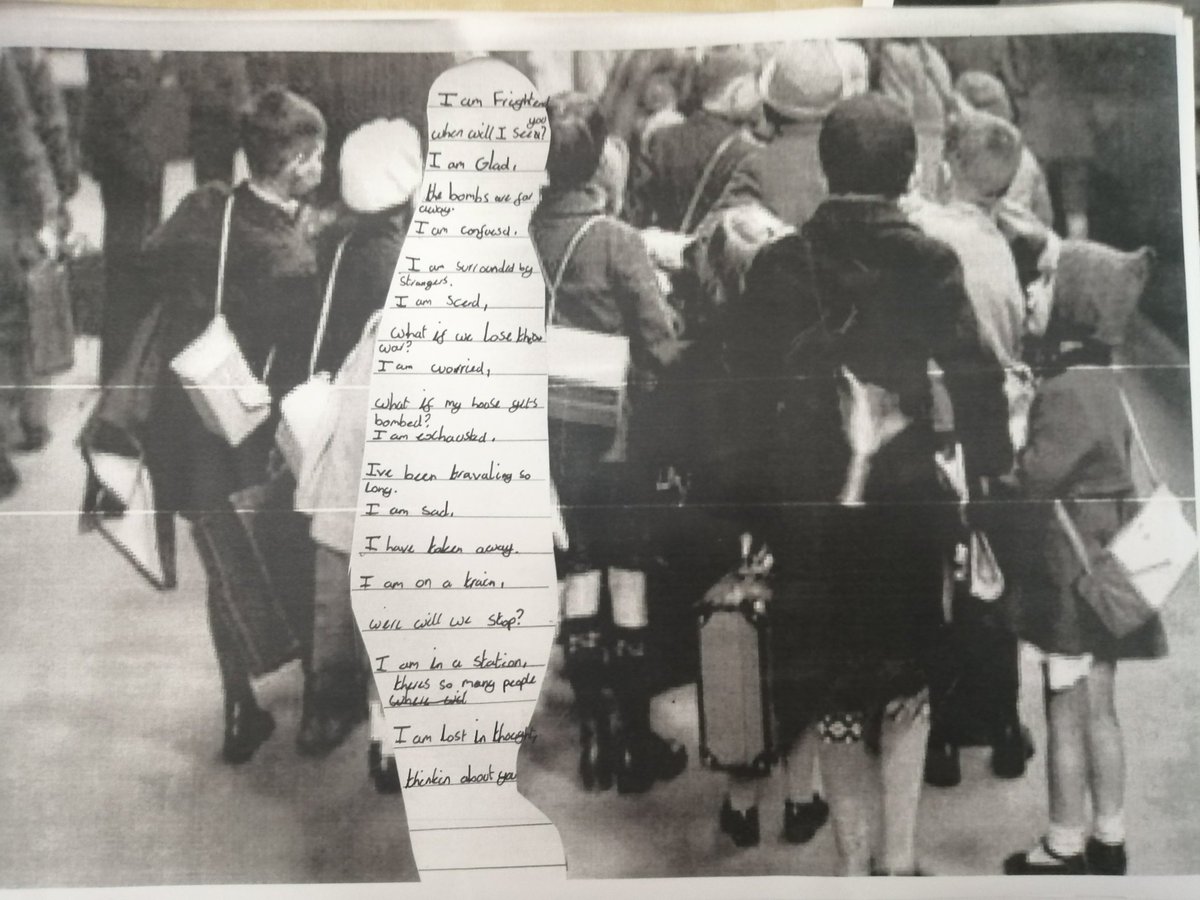 I am Frightend
you
when will I see?
I am Glad,
the bombs are far
away.
I am confuesd.
I am surrounded by
strangers.
I am scerd,
What if we lose the
war?
I am worried,
What if my house gets
bombed?
I am exhausted.
Ive been travaling so
long.
I am sad,
I have taken away.
I am on a train,
were will we stop?
I am in a station,
theres so many people
where will
I am lost in thought,
thinkin about you